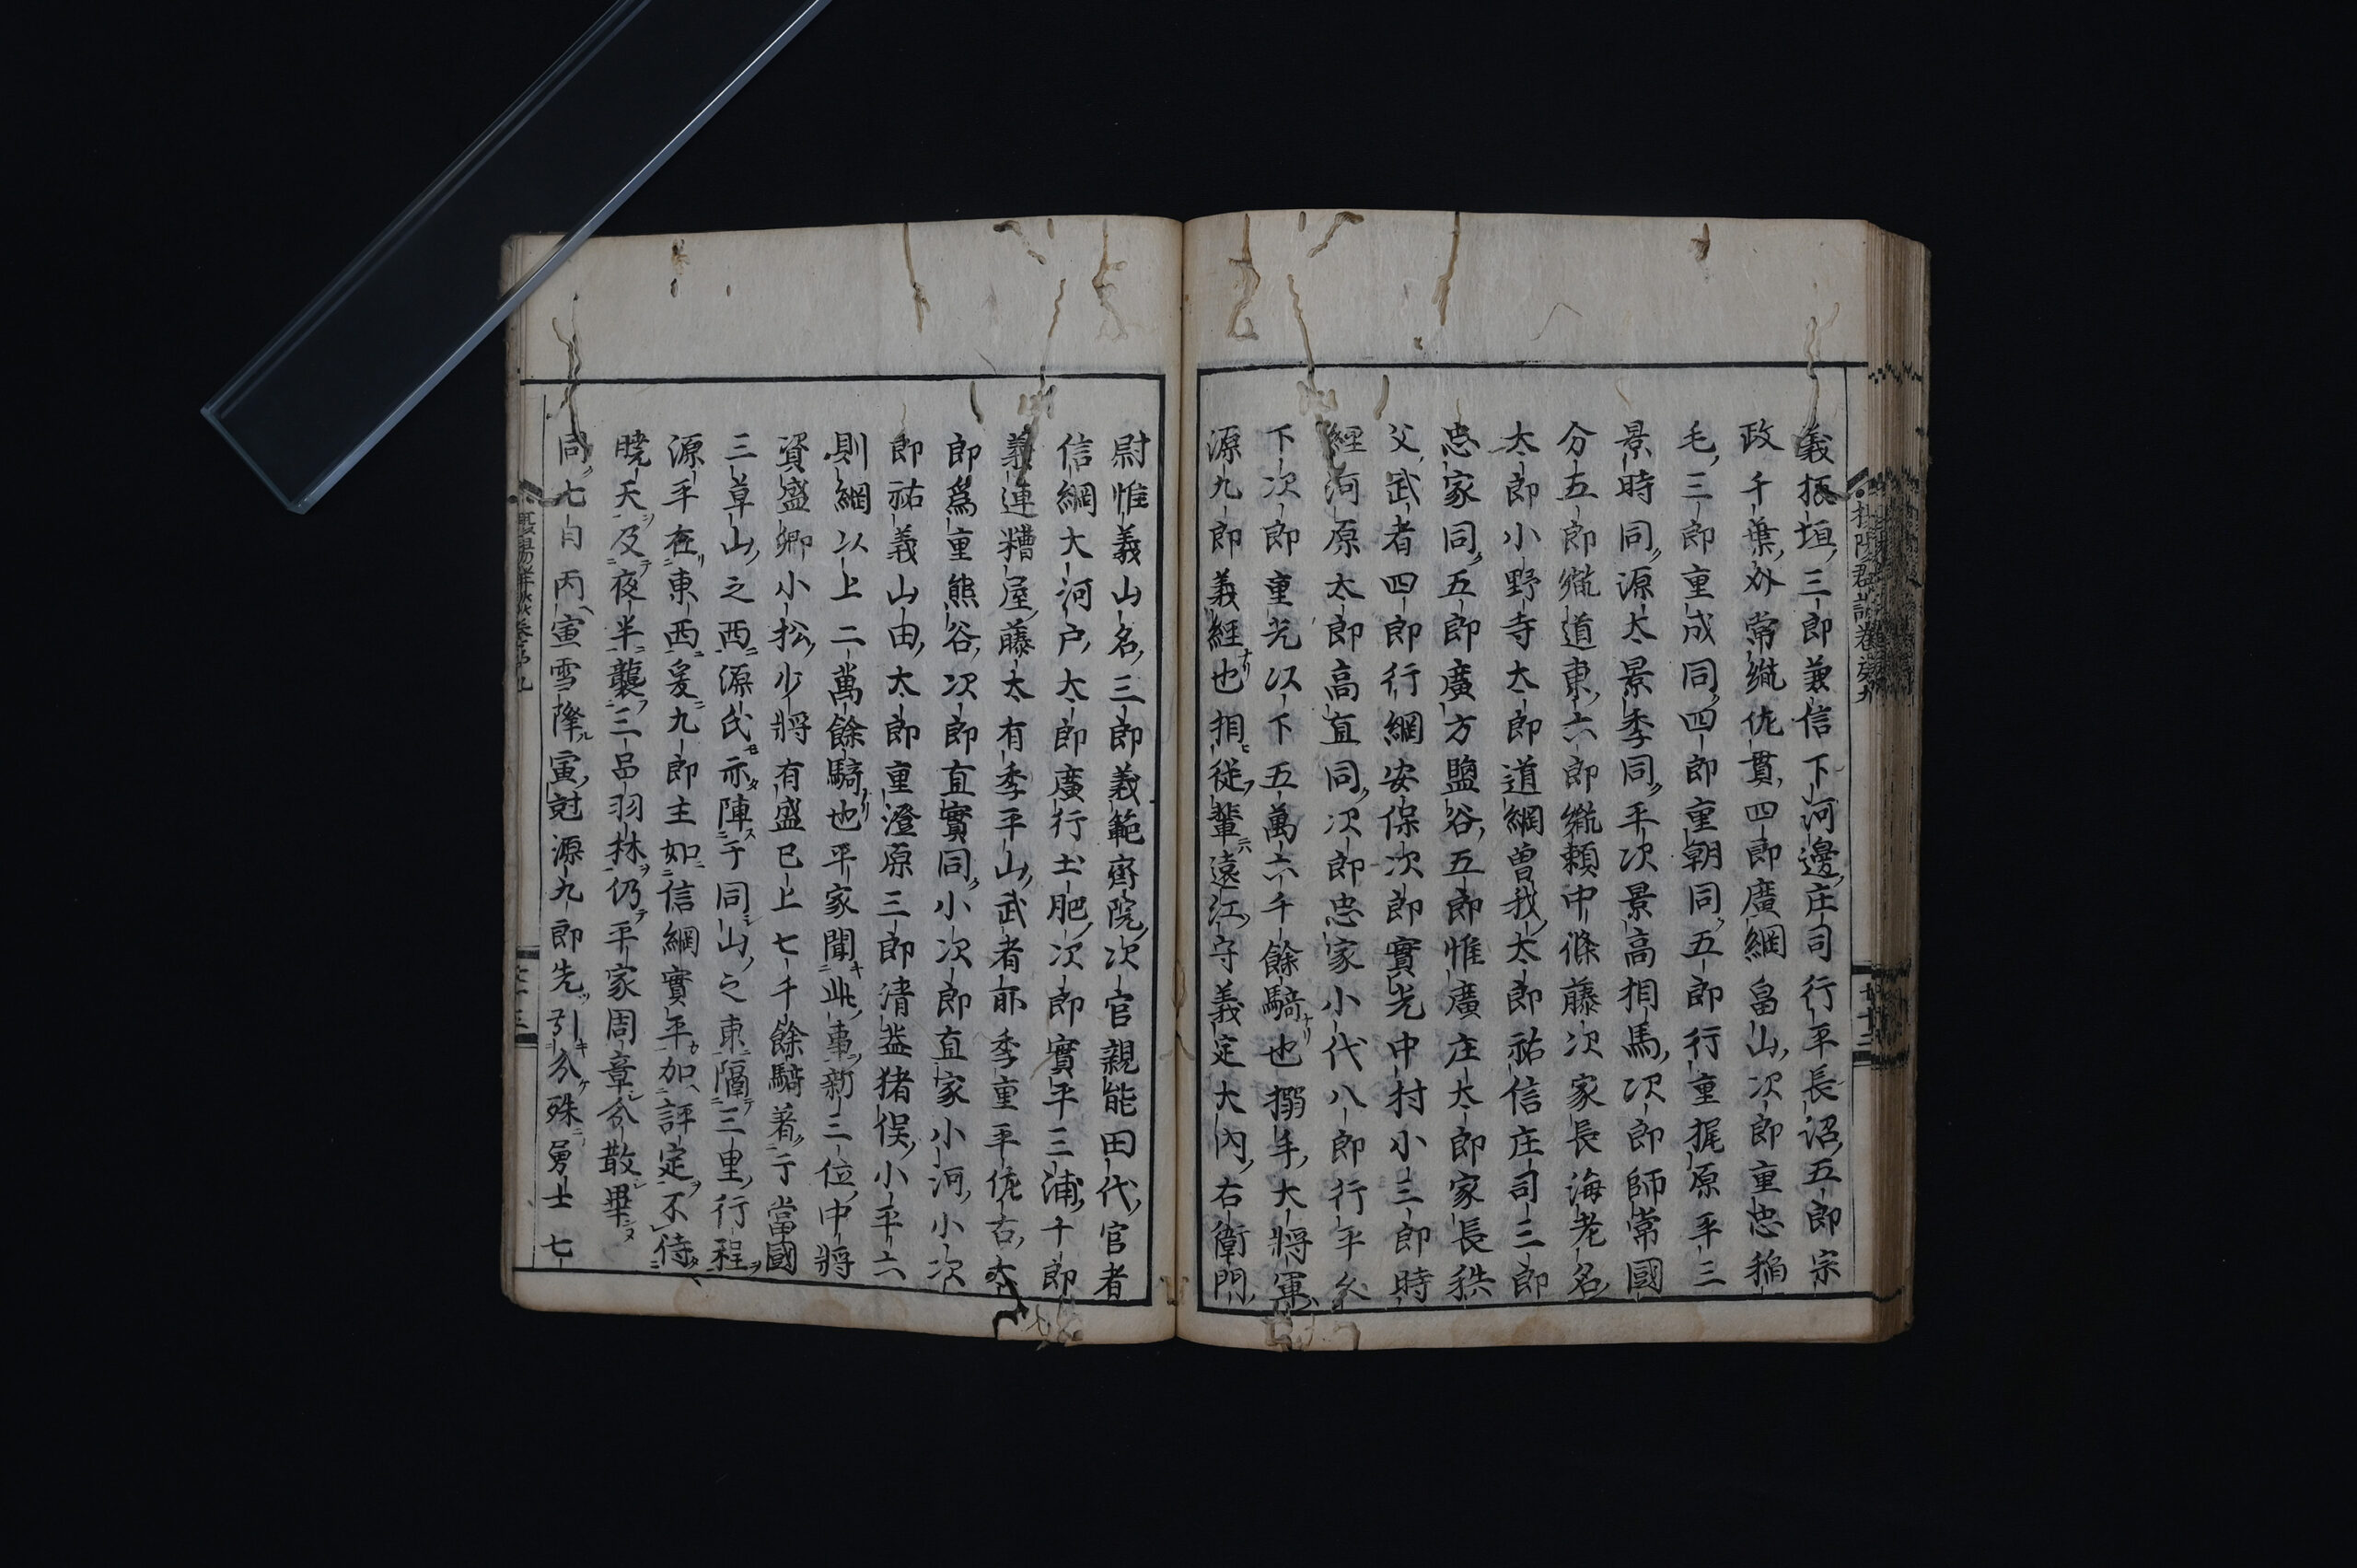 義板垣三郎兼信下河邊庄司行平長沼五郎宗
政千葉介常胤佐貫四郎廣綱畠山次郎重忠稲
毛三郎重成同四郎重朝同五郎行重梶原平三
景時同源太景季同平次景高相馬次郎師常國
分五郎胤道東六郎胤頼中條藤次家長海老名
太郎小野寺太郎道綱曽我太郎祐信庄司三郎
忠家同五郎廣方鹽谷五郎惟廣庄太郎家長秩
父武者四郎行綱安保次郎實光中村小三郎時
經河原太郎高直同次郎忠家小代八郎行平久
下次郎重光以下五萬六千餘騎ナリ也搦手大將軍ハ
源九郎義經ナリ也相ヒ從フ輩ニハ遠江守義定大内右衛門
尉惟義山名三郎義範齋院次官親能田代官者
信綱大河戸太郎廣行土肥次郎實平三浦十郎
義連糟屋藤太有季平山武者所季重平佐古太
郎爲重熊谷次郎直實同小次郎直家小河小次
郎祐義山田太郎重澄原三郎清益猪俣小平六
則綱以上二萬餘騎ナリ也平家聞キ此事ヲ新三位中將
資盛卿小松少將有盛已上七千餘騎着于當國
三草山之西ニ源氏モ亦タ陣ス于同シ山之東ニ隔テ三里行程ヲ
源平在リ東西ニ爰ニ九郎主如信綱實平カ加ヘ評定ヲ不待タ
曉天ヲ及テ夜半ニ襲フ三品羽林ヲ仍テ平家周章シ分散シ畢ヌ
同七日丙寅雪降ル寅尅源九郎先ツ引キ分ケ殊ニ勇士七